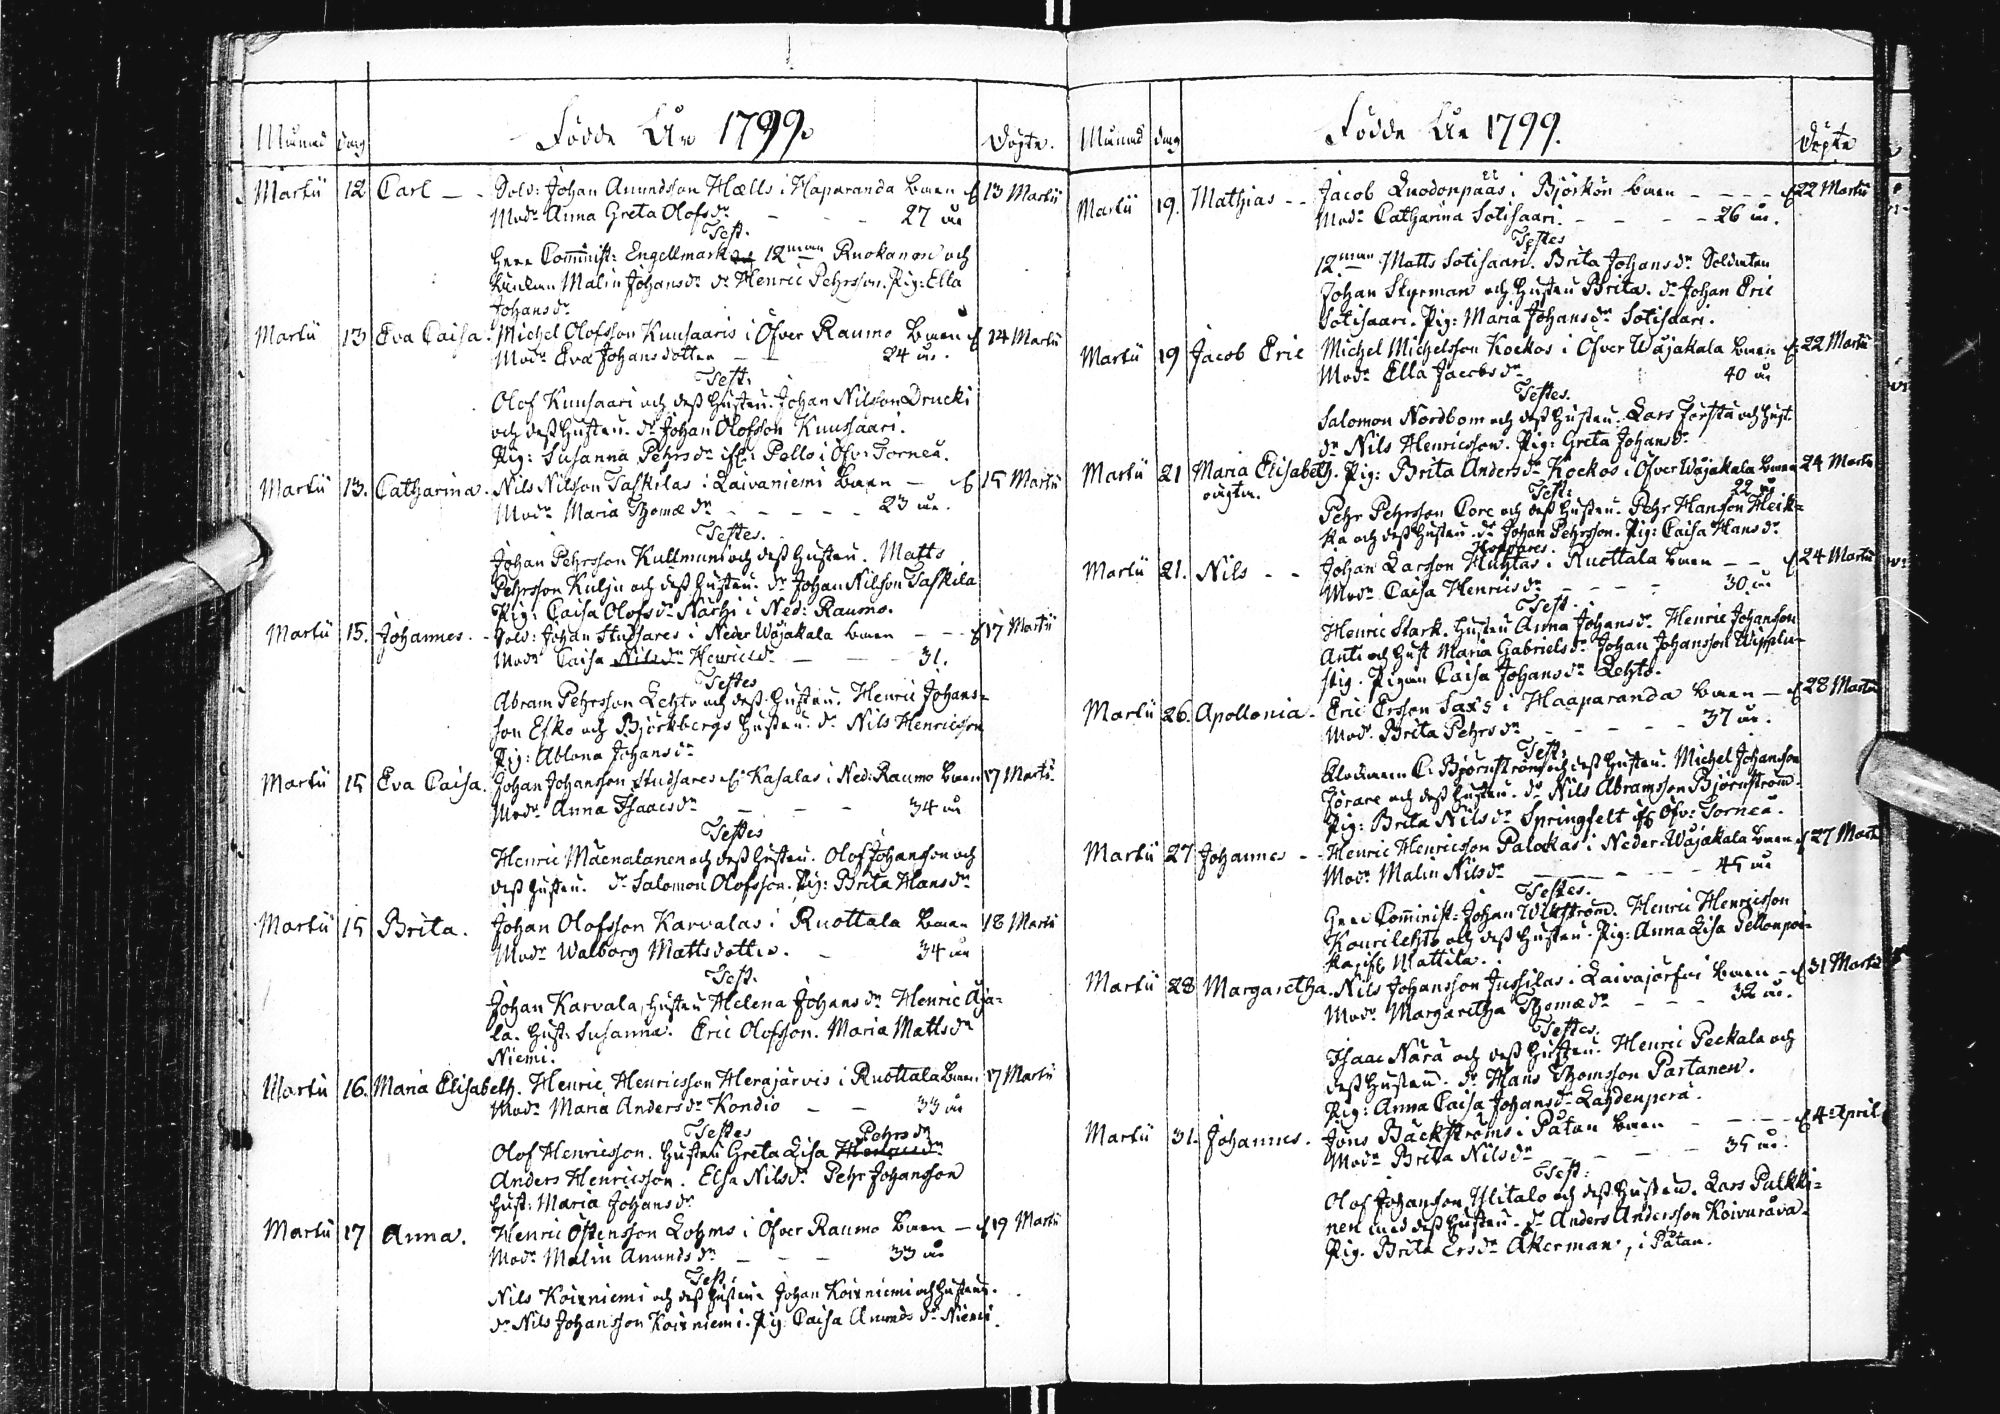 Månad dag Födde År 1799. Döpte.
Martii 12 Carl — - Sold: Johan Anundsson Hælls i Haparanda barn 13 Martii
Modr Anna Greta Olofsdr - - - 27 år
Test.
Herr Comminist: Engellmark 12man Ruokanen och
Malin Johansdr dr Henric Pehrsson. Pig: Ella
Johansdr
Martii 13 Eva Caisa. Michel Olofsson Kuusaaris i Öfver Raumo barn 14 Martii
Modr Eva Johansdotter — 24 år.
Test.
Olof Kuusaari och dess hustru. Johan Nilsson Drucki
och dess hustru. dr Johan Olofsson Kuusaari.
Pig: Susanna Pehrsdr if. Pello i Öfv: Torneå.
Martii 13. Catharina. Nils Nilsson Taskilas i Laivaniemi barn — 15 Martii
Modr Maria Thomædr - - - - - 23 år.
Testes.
Johan Pehrsson Kullmuni och dess hustru. Matts
Pehrsson Kulju och dess hustru. dr Johan Nilsson Taskila
Pig: Caisa Olofsdr Närhi i Ned: Raumo.
Martii 15. Johannes. - Sold: Johan Studsares i Neder Wojakala barn - - - 17 Martii
Modr Caisa Nilsdr Henricsdr - — - 31.
Testes
Abram Pehrsson Lehto och dess hustru. Henric Johans=
son Esko och Björkbergs hustru. dr Nils Henricsson
Pig: Ablona Johansdr
Martii 15 Eva Caisa. Johan Johansson Studsares if. Kasalas i Ned: Raumo barn 17 Martii
Modr Anna Isaacsdr - - - 34 år
Testes
Henric Mäenalanen och dess hustru. Olof Johansson och
dess hustru. dr Salomon Olofsson. Pig: Brita Hansdr
Martii 15 Brita. Johan Olofsson Karvalas i Ruottala barn 18 Martii
Modr Walborg Mattsdotter. - 34 år
Test.
Johan Karvala, hustru Helena Johansdr Henric Aja=
la. Hust: Susanna. Eric Olofsson. Maria Mattsdr
Niemi.
Martii 16. Maria Elisabeth. Henric Henricsson Herajärvis i Ruottala barn 17 Martii
Modr Maria Andersdr Kondio - - 33 år
Testes Pehrsdr
Olof Henricsson. hustru Greta Lisa Henricsdr
Anders Henricsson. Elsa Nilsdr Pehr Johansson
hust: Maria Johansdr
Martii 17 Anna. Henric Östensson Lohms i Öfver Raumo barn — 19 Martii
Modr Malin Anundsdr - - - 33 år
Test:
Nils Koivniemi och dess hustru Johan Koivniemi och hustru.
dr Nils Johansson Koivniemi. Pig: Caisa Anundsdr Niemi.
Månad dag Födde År 1799. Döpte
Martii 19. Mathias - - Jacob Luodonpääs i Björkön barn - - - - 22 Martii
Modr Catharina Sotisaari. - - - - - 26 år.
Testes
12man Matts Sotisaari. Brita Johansdr Soldaten
Johan Styrman och hustru Brita. dr Johan Eric
Sotisaari. Pig: Maria Johansdr Sotisaari.
Martii 19 Jacob Eric Michel Michelsson Koekos i Öfver Wojakala barn 22 Martii
Modr Ella Jacobsdr 40 år
Testes.
Salomon Nordbom och dess hustru. Lars Forsta och Hust
dr Nils Henricsson. Pig: Greta Johansdr
Martii 21 Maria Elisabeth. Pig: Brita Andersdr Koekos i Öfver Wojakala barn 24 Martii
oägta. Test: 22 år
Pehr Pehrsson Core och dess hustru. Pehr Hansson Heik=
ka och dess hustru. dr Johan Pehrsson. Pig: Caisa Hansdr
Martii 21. Nils - - Johan Larsson Huhtas i Ruottala barn - - 24 Martii
Modr Caisa Henricsdr - - - - 30 år
Test.
Henric Stark. hustru Anna Johansdr. Henric Johansson
Anti och hust Maria Gabrielsdr Johan Johansson
Pigan Caisa Johansdr Lehto.
Martii 26. Apollonia. - Eric Ersson Saxs i Haaparanda barn — 28 Martii
Modr Brita Pehrsdr - - - - - 37 år.
Test.
Klockaren C. Björnström och dess hustru. Michel Johansson
Förare och dess hustru. dr Nils Abramsson Björnström.
Pig: Brita Nilsdr Springfelt if. Öfv: Torneå.
Martii 27 Johannes - - Henric Henricsson Palokas i Neder Wojakala barn 27 Martii
Modr Malin Nilsdr - - - - 45 år
Testes.
Herr Comminist: Johan Wikström. Henric Henricsson
Kourilehto och dess hustru. Pig: Anna Lisa Pellonpää=
Mattila.
Martii 28 Margaretha. Nils Johansson Jussilas i Laivajärfvi barn - 31 Martii
Modr Margaretha Thomædr - - - 32 år.
Testes.
Isaac Närä och dess hustru. Henric Peckala och
dess hustru. dr Hans Thomsson Partanen.
Pig: Anna Caisa Johansdr Lahdenperä.
Martii 31. Johannes. Jöns Bäckströms i Påtan barn - - - - 4 April
Modr Brita Nilsdr - - - - - 35 år.
Test:
Olof Johansson Ylitalo och dess hustru. Lars Palkki=
nen med dess hustru. dr Anders Andersson Koivuråva.
Pig. Brita Ersdr Åkerman, i Påtan.